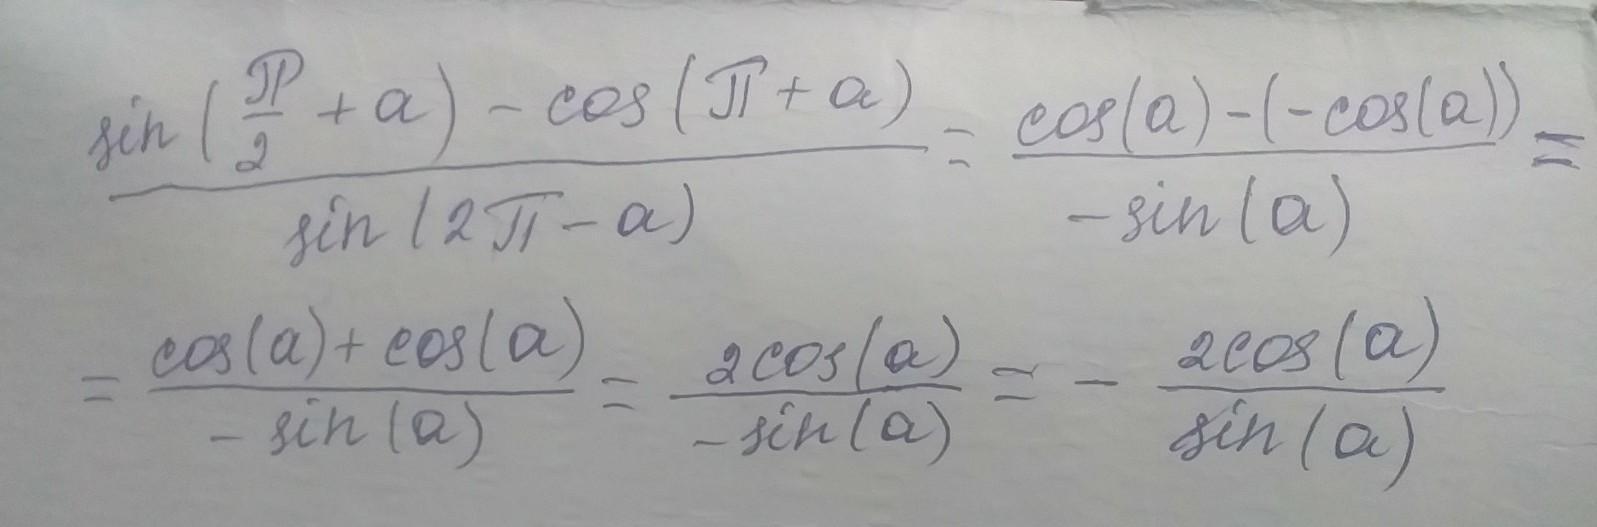 sin(π/2 + a) - cos(π + a) / sin(2π - a) = cos(a) - (-cos(a)) / -sin(a) =
= cos(a) + cos(a) / -sin(a) = 2cos(a) / -sin(a) = - 2cos(a) / sin(a)